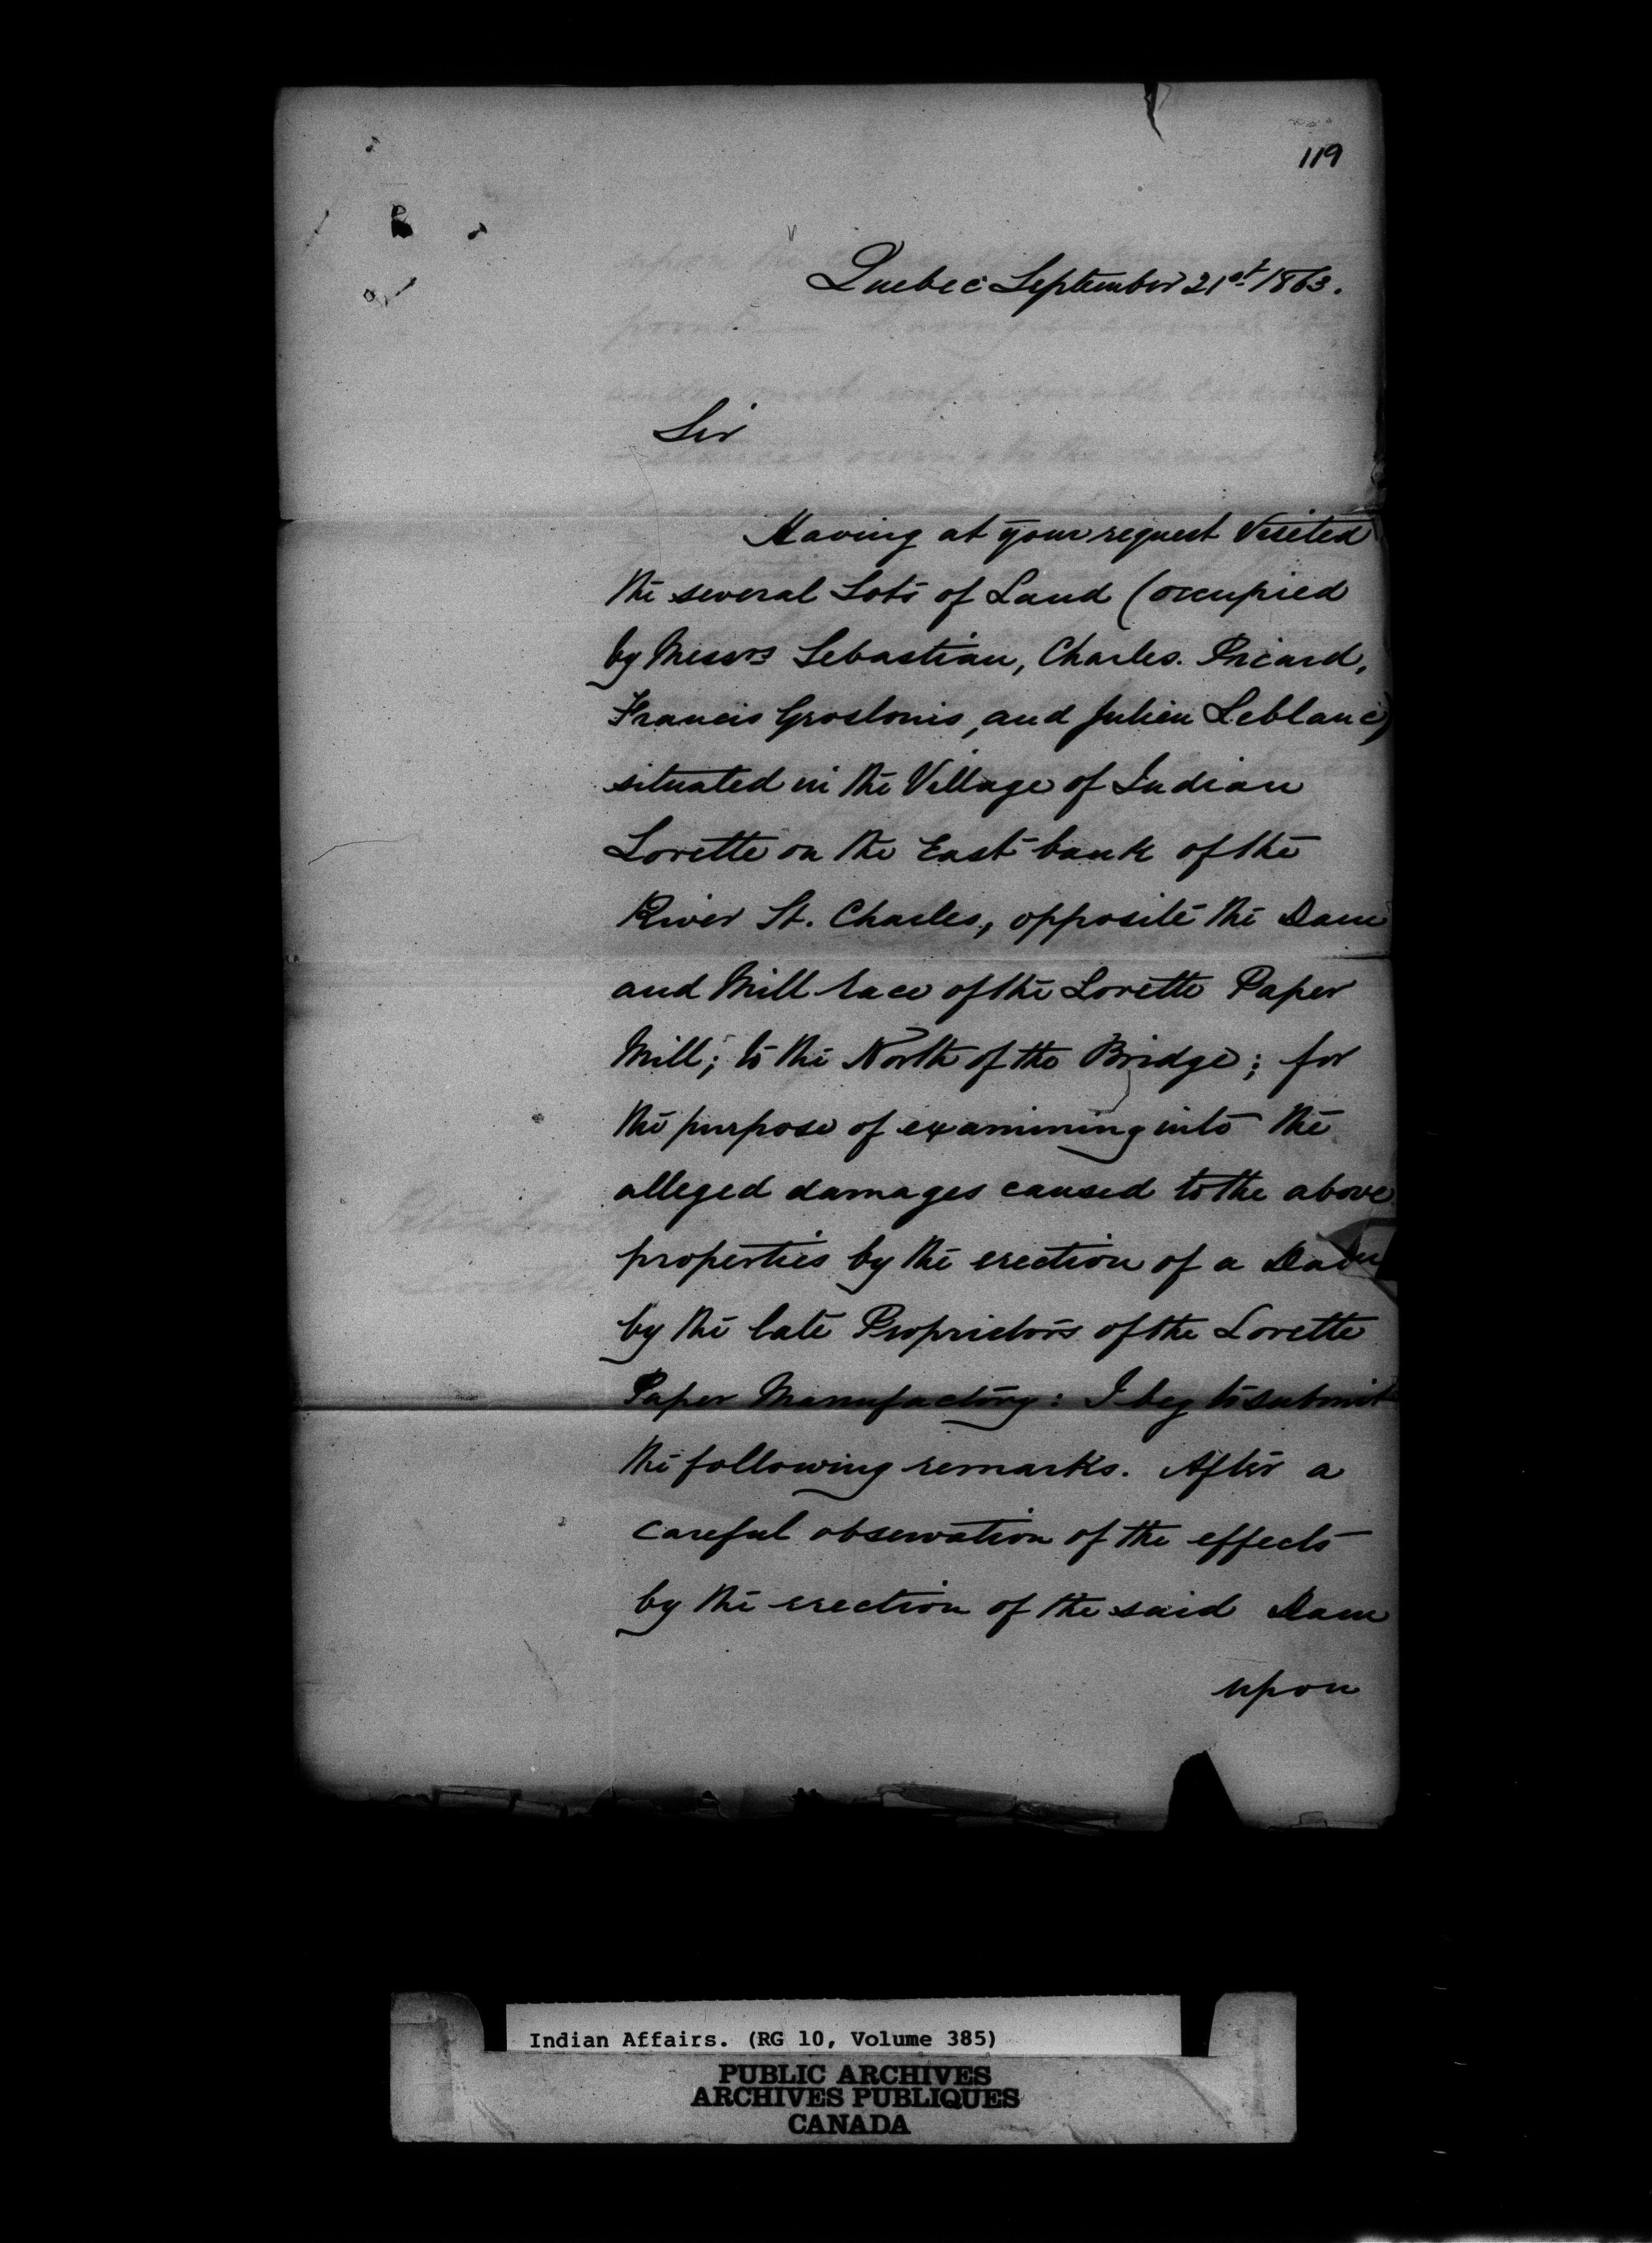 119
Quebec September 21st 1863.
Sir
Having at your request Visited
the several Lots of Land (occupied
by Messrs Sebastian, Charles. Picard,
Francis Groslouis, and Julien Leblanc)
situated in the Village of Indian
Lorette on the East bank of the
River St. Charles, opposite the Dam
and Mill race of the Lorette Paper
Mill; to the North of the Bridge; for
the purpose of examining into the
alleged damages caused to the above
properties by the erection of a Dam
by the late Proprietors of the Lorette
Paper Manufactory: I beg to submit
the following remarks. After a
careful observation of the effects
by the erection of the said Dam
upon
Indian Affairs. (RG 10, Volume 385)
PUBLIC ARCHIVES
ARCHIVES PUBLIQUES
CANADA